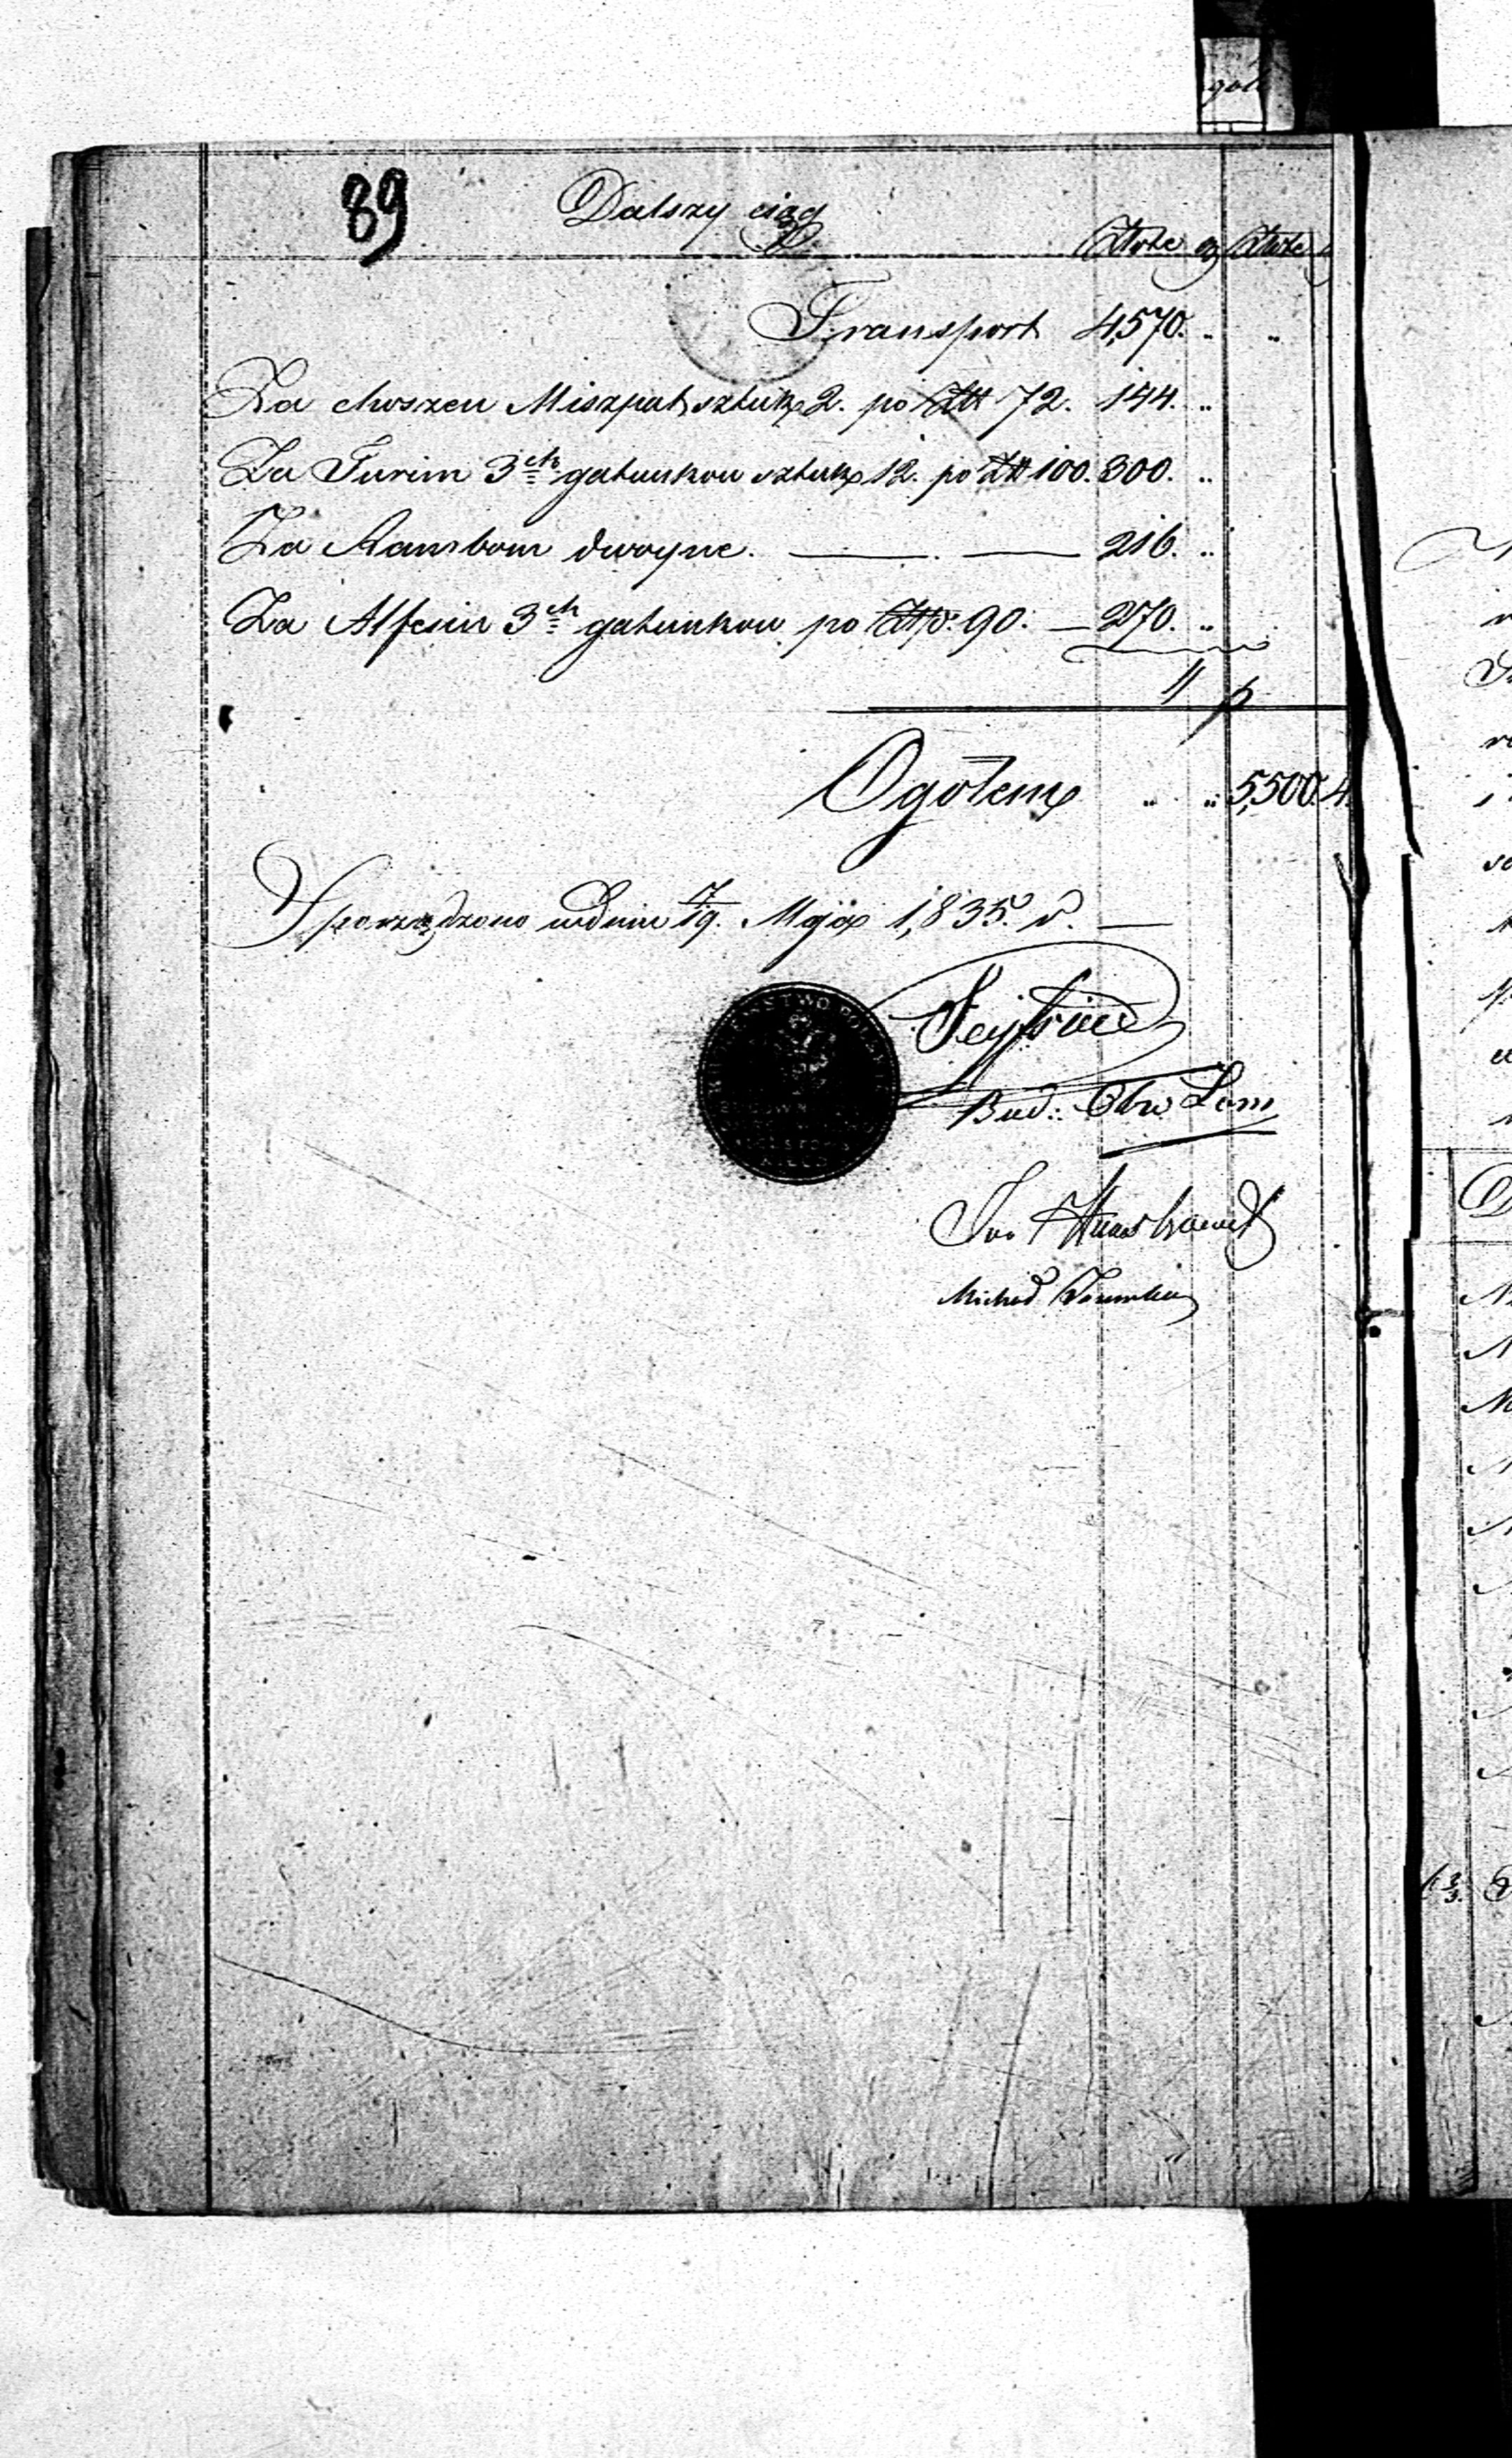 89
Dalszy ciąg
Złote g Złote
Transport 4,570. „ „
Za choszen Miszpat sztuk 2. po Złł 72. 144. „
Za Turim 3ch gatunkow sztuk 12. po Złł 100. 300. „
Za Rambom dwoyne. — . — 216. „
Za Alfesin 3ch gatunkow po Złłp. 90. — 270. „
Ogółem „ „ 5,500. 4
Sporządzono w dniu 7/19. Maja 1,835. r. —
Bud: Obw. Łom
Michał